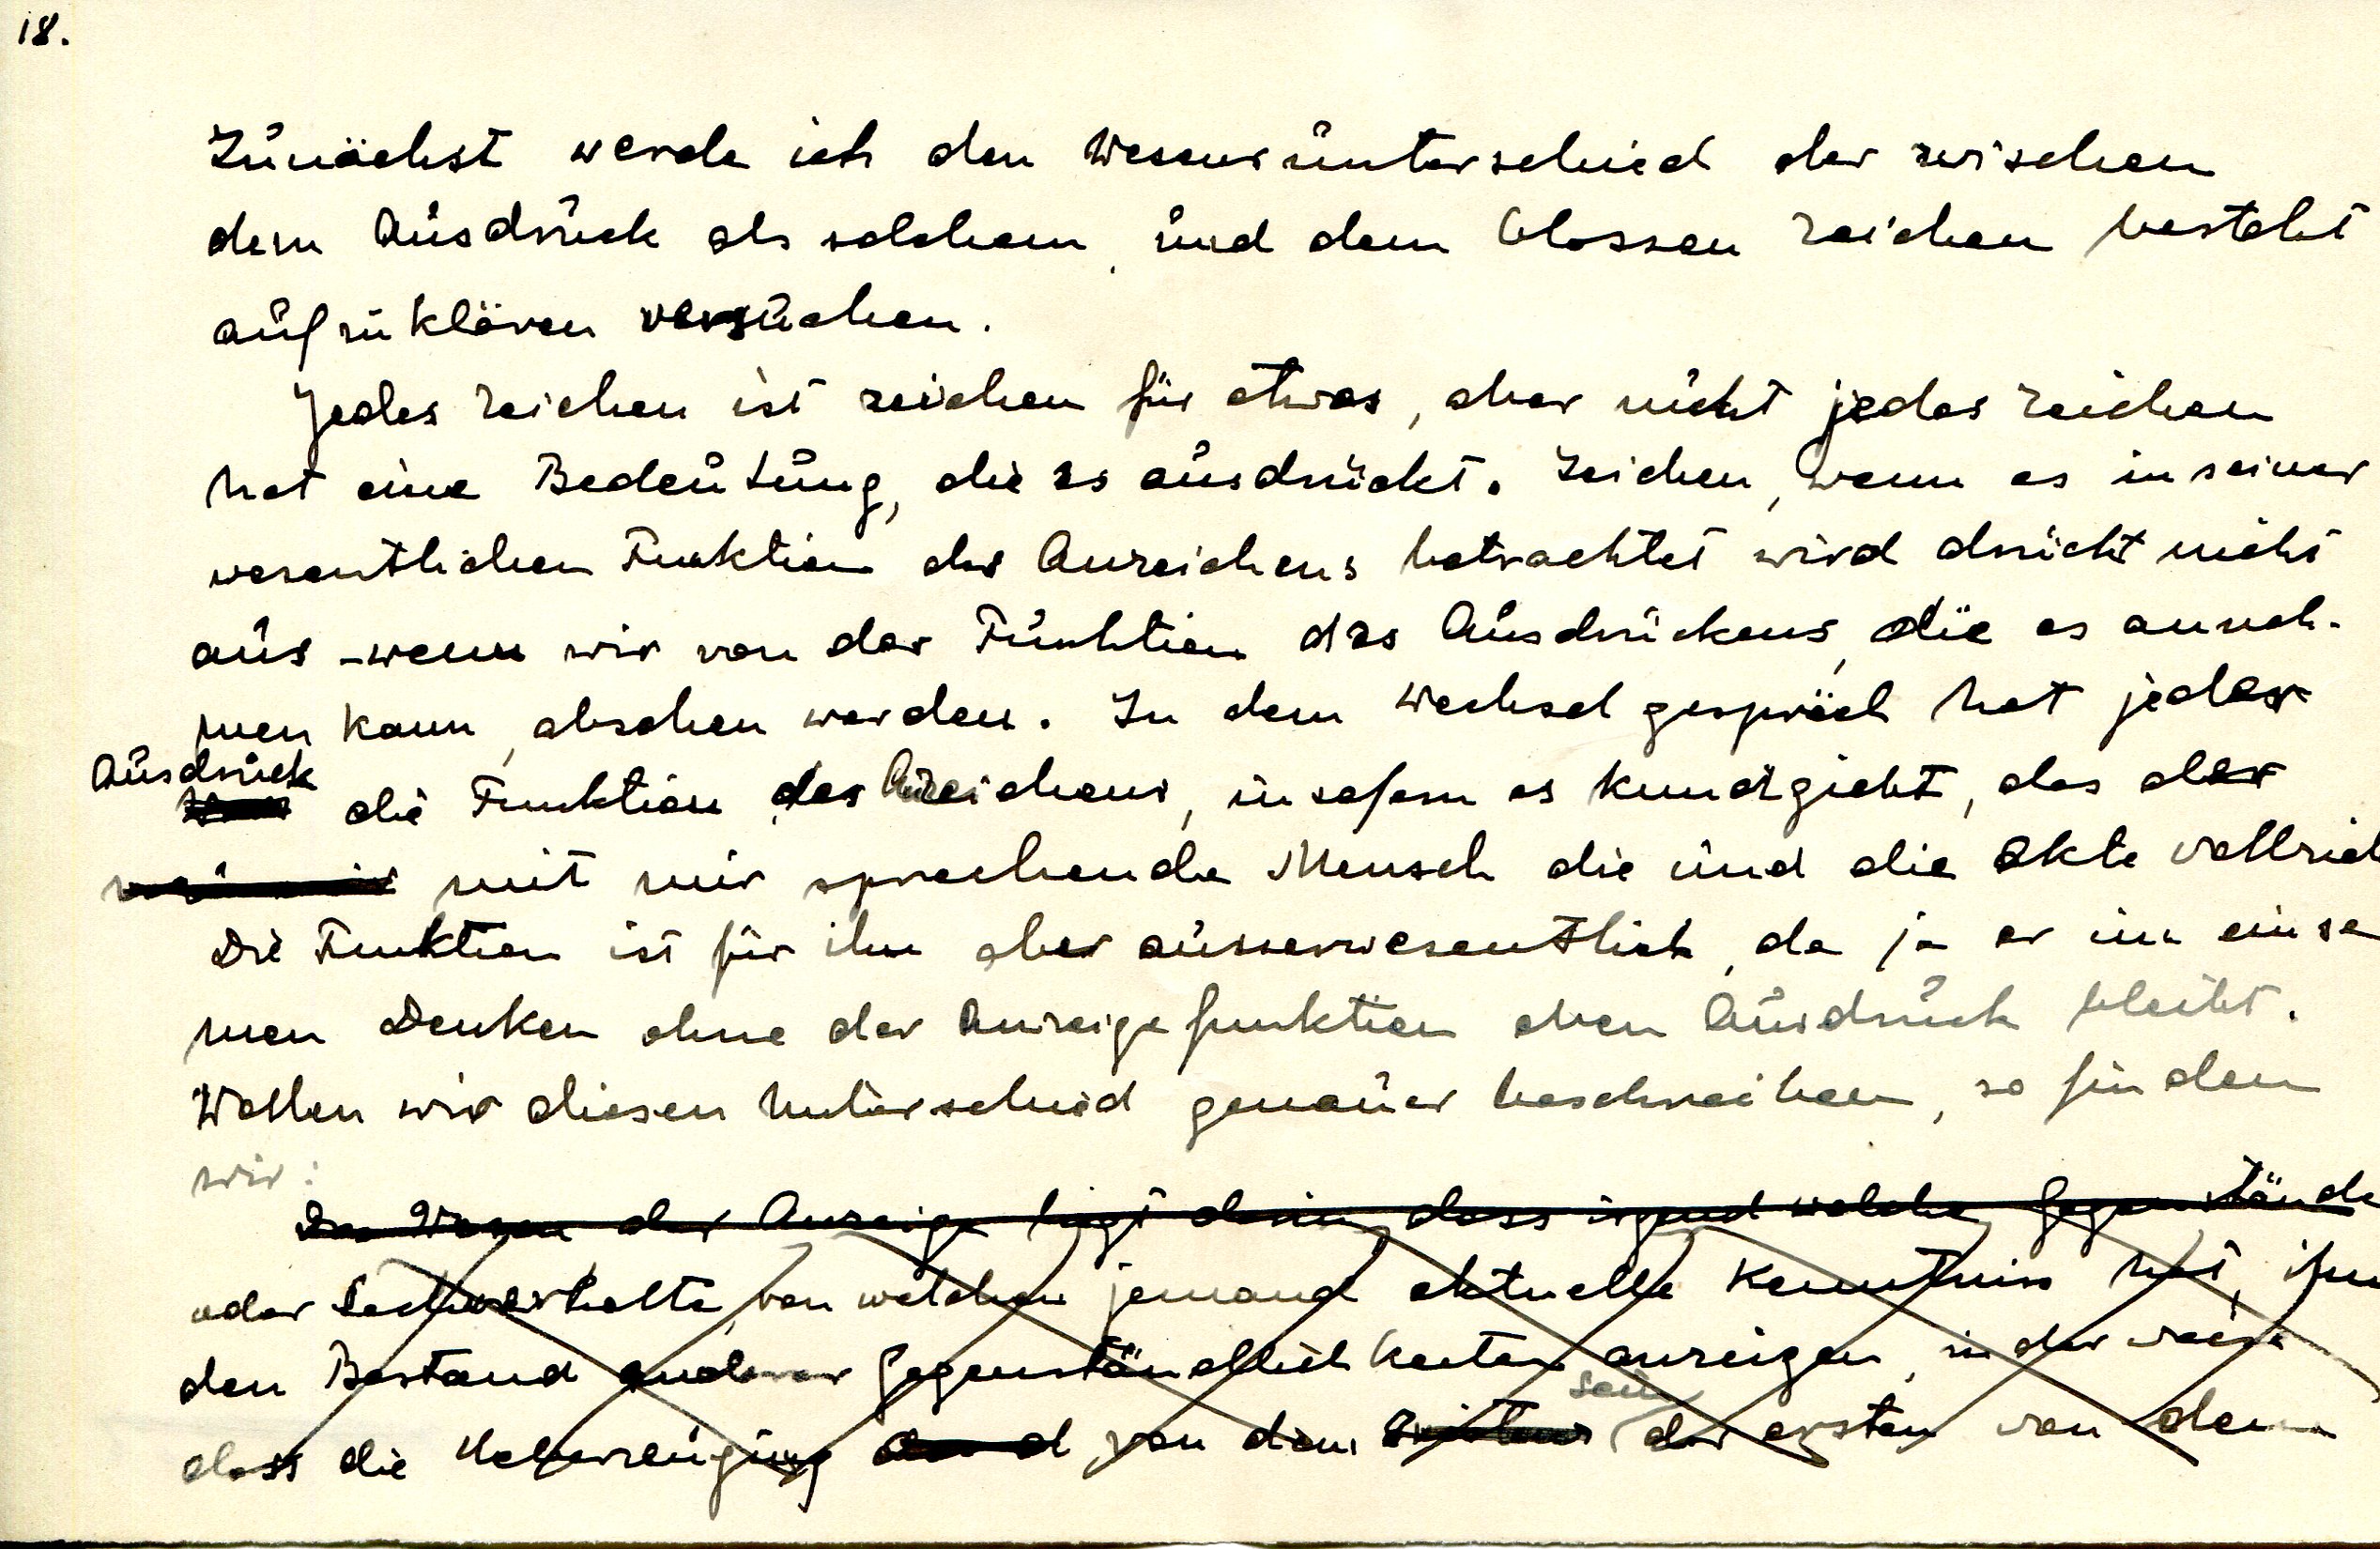 18.
Zunächst werde ich den Wesensunterschied der zwischen
dem Ausdruck als solchem und dem blossen Zeichen besteht
aufzuklären versuchen.
Jedes Zeichen ist Zeichen für etwas, aber nicht jedes Zeichen
hat eine Bedeutung, die es ausdrückt. Zeichen, wenn es in seiner
wesentlichen Funktion des Anzeichens betrachtet wird drückt nicht
aus - wenn wir von der Funktion des Ausdrückens, die es anneh-
men kann, absehen werden. In dem Wechselgespräch hat jeder
Ausdruck
die Funktion des Anzeichens, insofern es kundgiebt, das der
mit mir sprechende Mensch die und die Akte vollzieh
Die Funktion ist für ihn aber ausserwesentlich, da ja er im einsa
men Denken ohne der Anzeigefunktion eben Ausdruck bleibt.
Wollen wir diesen Unterschied genauer beschreiben, so finden
wir:
Das Wesen der Anzeige liegt darin, dass irgend welche Gegenstände
oder Sachverhalte, von welchen jemand aktuelle Kenntniss hat, ihm
den Bestand anderer Gegenständlichkeiten anzeigen, in der Weise
sein
dass die Ueberzeugung von dem der ersten von dem